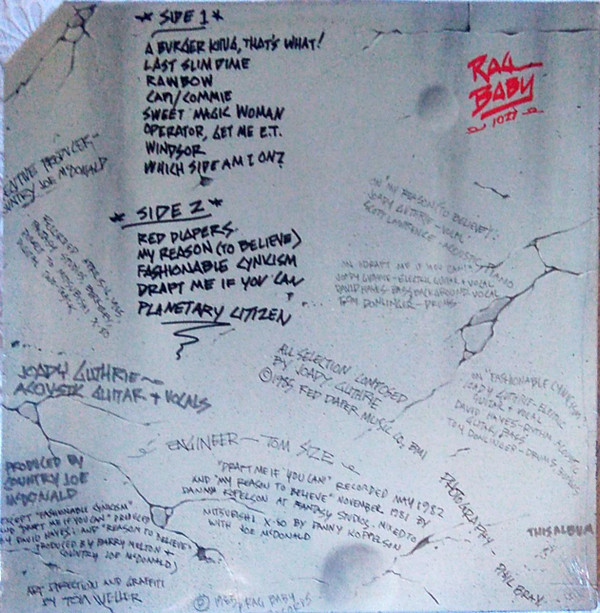 * SIDE 1 *
A BURGER KING, THAT'S WHAT!
LAST SLIM DIME
RAWBOW
CAP/COMMIE
SWEET MAGIC WOMAN
OPERATOR, GET ME E.T.
WINDSOR
WHICH SIDE AM I ON?
* SIDE 2 *
RED DIAPERS
MY REASON (TO BELIEVE)
FASHIONABLE CYNICISM
DRAFT ME IF YOU CAN
PLANETARY CITIZEN
RAG
BABY
PRODUCER-
COUNTRY JOE McDONALD
ON "MY REASON (TO BELIEVE)":
JOADY GUTHRIE - VOCAL
ACOUSTIC PIANO
ON "DRAFT ME IF YOU CAN":
JOADY GUTHRIE - ELECTRIC GUITAR + VOCAL
DAVID HAYES BASS, BACKGROUND VOCAL
TOM DONLINGER - DRUMS
JOADY GUTHRIE -
ACOUSTIC GUITAR + VOCALS
ALL SELECTION COMPOSED
BY JOADY GUTHRIE
© 1985, RED DIAPER MUSIC CO, BMI
ON "FASHIONABLE CYNICISM":
JOADY GUTHRIE - ELECTRIC
GUITAR + VOCAL
DAVID HAYES - RHYTHM, ACOUSTIC
GUITAR, BASS
TOM DONLINGER - DRUMS
ENGINEER - TOM SIZE
"DRAFT ME IF YOU CAN" RECORDED MAY 1982
AND "MY REASON TO BELIEVE" NOVEMBER 1981 BY
DANNY KOPELSON AT FANTASY STUDIOS, MIXED TO
MITSUBISHI X-80 BY DANNY KOPPERSON
WITH JOE McDONALD
PRODUCED BY
COUNTRY JOE
McDONALD
EXCEPT "FASHIONABLE CYNICISM"
AND "DRAFT ME IF YOU CAN" PRODUCED
BY DAVID HAYES; AND "REASON TO BELIEVE"
PRODUCED BY BARRY MELTON +
COUNTRY JOE McDONALD)
ART DIRECTION AND GRAFFITI
BY TOM WELLER
PHOTOGRAPHY -
PHIL BRAY
THIS ALBUM
℗ 1985, RAG BABY
RECORDS